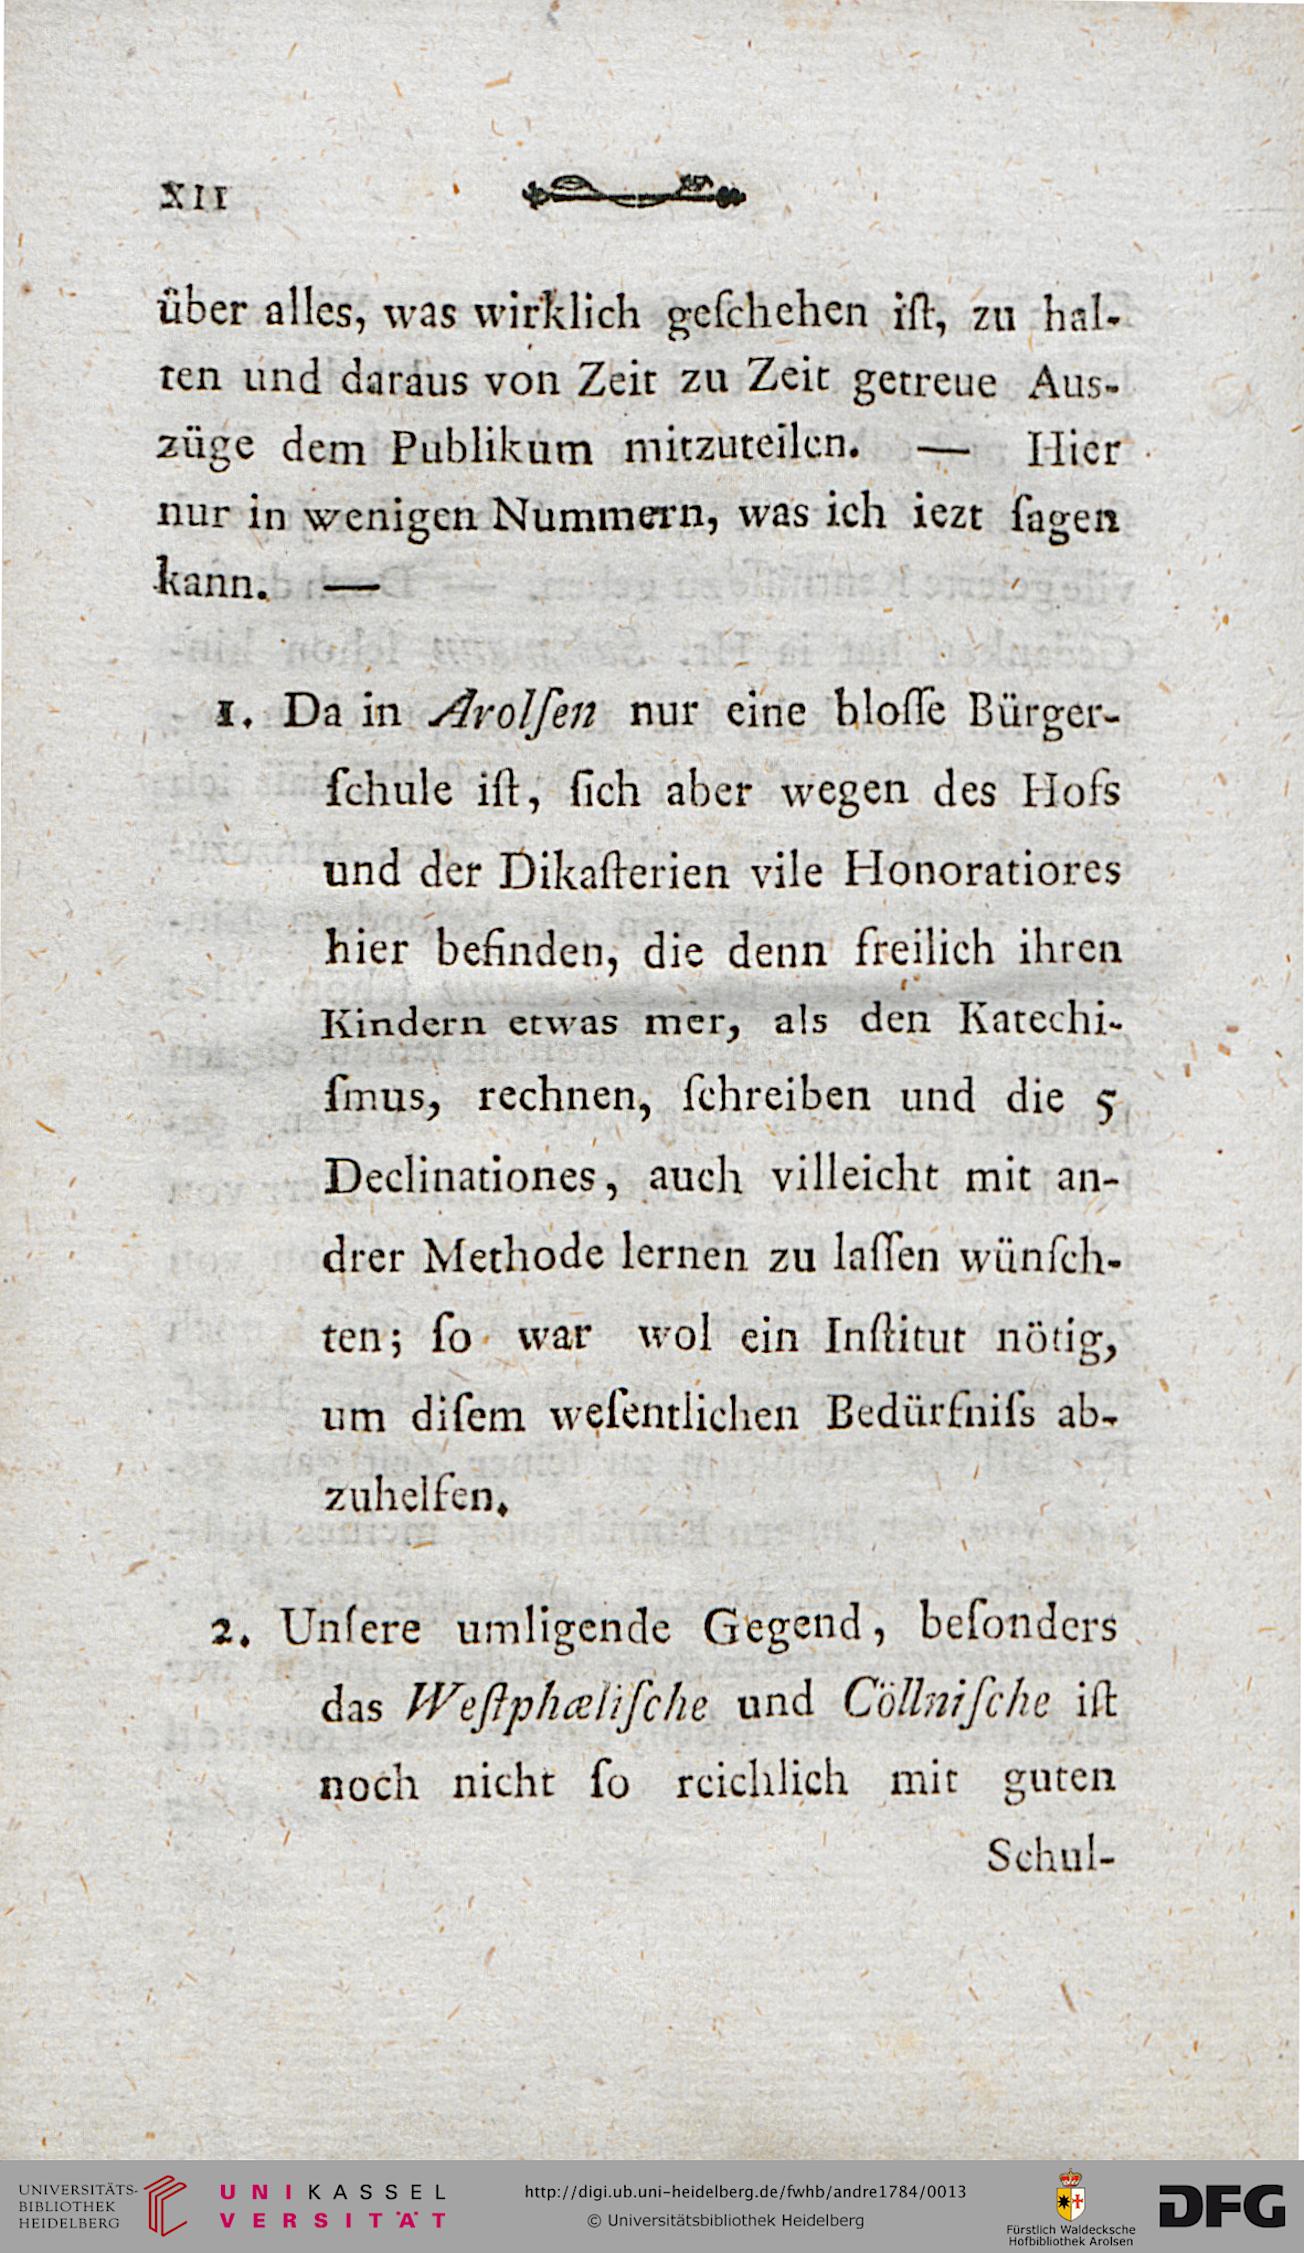 XII
über alles, was wirklich geſchehen iſt, zu hal-
ten und daraus von Zeit zu Zeit getreue Aus-
züge dem Publikum mitzuteilen. — Hier
nur in wenigen Nummern, was ich iezt ſagen
kann. —
1. Da in Arolſen nur eine bloſſe Bürger-
ſchule iſt, ſich aber wegen des Hofs
und der Dikaſterien vile Honoratiores
hier befinden, die denn freilich ihren
Kindern etwas mer, als den Katechi-
ſmus, rechnen, ſchreiben und die 5
Declinationes, auch villeicht mit an-
drer Methode lernen zu laſſen wünſch-
ten; ſo war wol ein Inſtitut nötig,
um diſem weſentlichen Bedürfniſs ab-
zuhelfen.
2. Unſere umligende Gegend, beſonders
das Weſtphæliſche und Cöllniſche iſt
noch nicht ſo reichlich mit guten
Schul-
UNIVERSITÄTS-
BIBLIOTHEK
HEIDELBERG
UNIKASSEL
VERSITÄT
http://digi.ub.uni-heidelberg.de/fwhb/andre1784/0013
© Universitätsbibliothek Heidelberg
Fürstlich Waldecksche
Hofbibliothek Arolsen
DFG